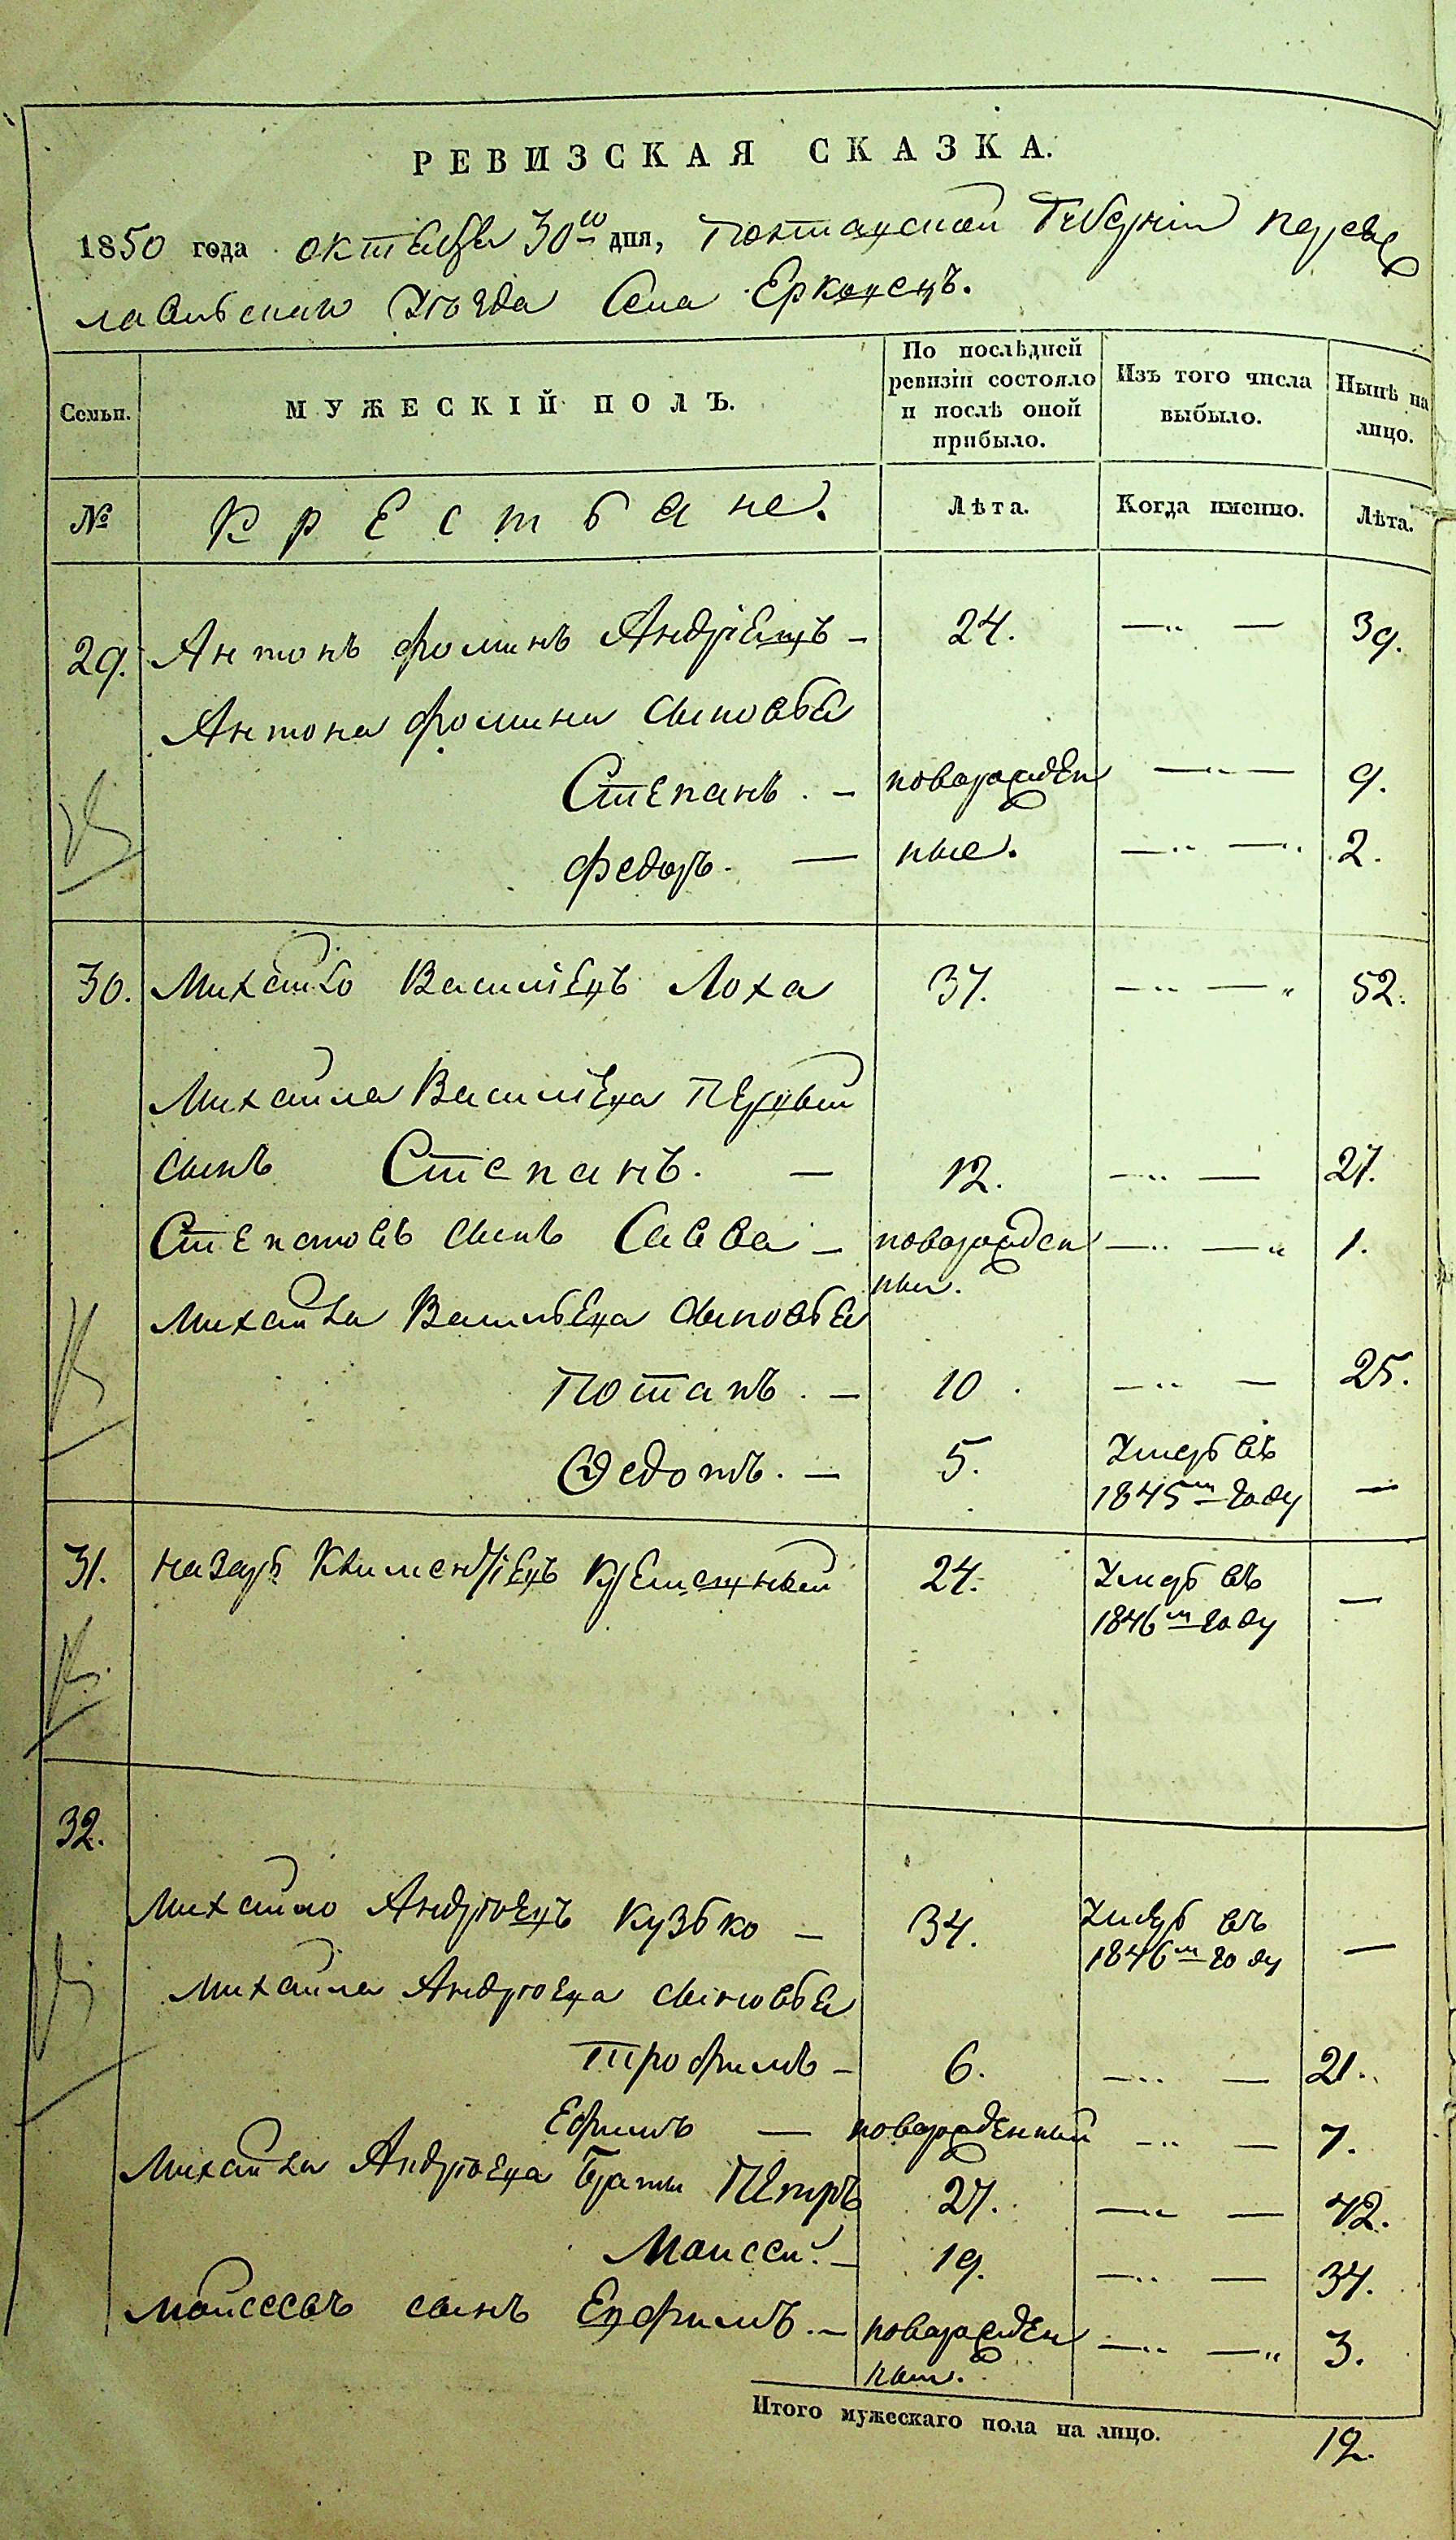 РЕВИЗСКАЯ СКАЗКА.
1850 года октября 30го дня, Полтавской Губерніи Перея
славскаго Уѣзда Села Ерковецъ.
Семьи.
МУЖЕСКІЙ ПОЛЪ.
По послѣдней
ревизіи состояло
и послѣ оной
прибыло.
Изъ того числа
выбыло.
Нынѣ на
лицо.
№ Крестьяне. Лѣта. Когда имянно. Лѣта.
29. Антонъ Фоминъ – 24. 39.
Антона Фомина сыновья
Степанъ. – новорожден 9.
Федоръ. – ные. 2.
30. Михайло Васильевъ Лоха 37. 52.
Михайла Васильева первый
сынъ Степанъ. – 12. 27.
Степановъ сынъ Савва – новорожден 1.
ный.
Михайла Васильева сыновья
Потапъ. – 10. 25.
Ѳедотъ. – 5. Умеръ въ
1845м году —
31. Назаръ Климентіевъ 24. Умеръ въ
1846м году —
32.
Михайло Андреевъ Кузько – 34. Умеръ въ
1846м году —
Михайла Андреева сыновья
Трофимъ – 6. 21.
Ефимъ — новорожденный 7.
Михайла Андреева братья Петръ 27. 42.
Моисей. – 19. 34.
Моисеевъ сынъ Евфимъ. – новорожден 3.
ный.
Итого мужескаго пола на лицо. 12.